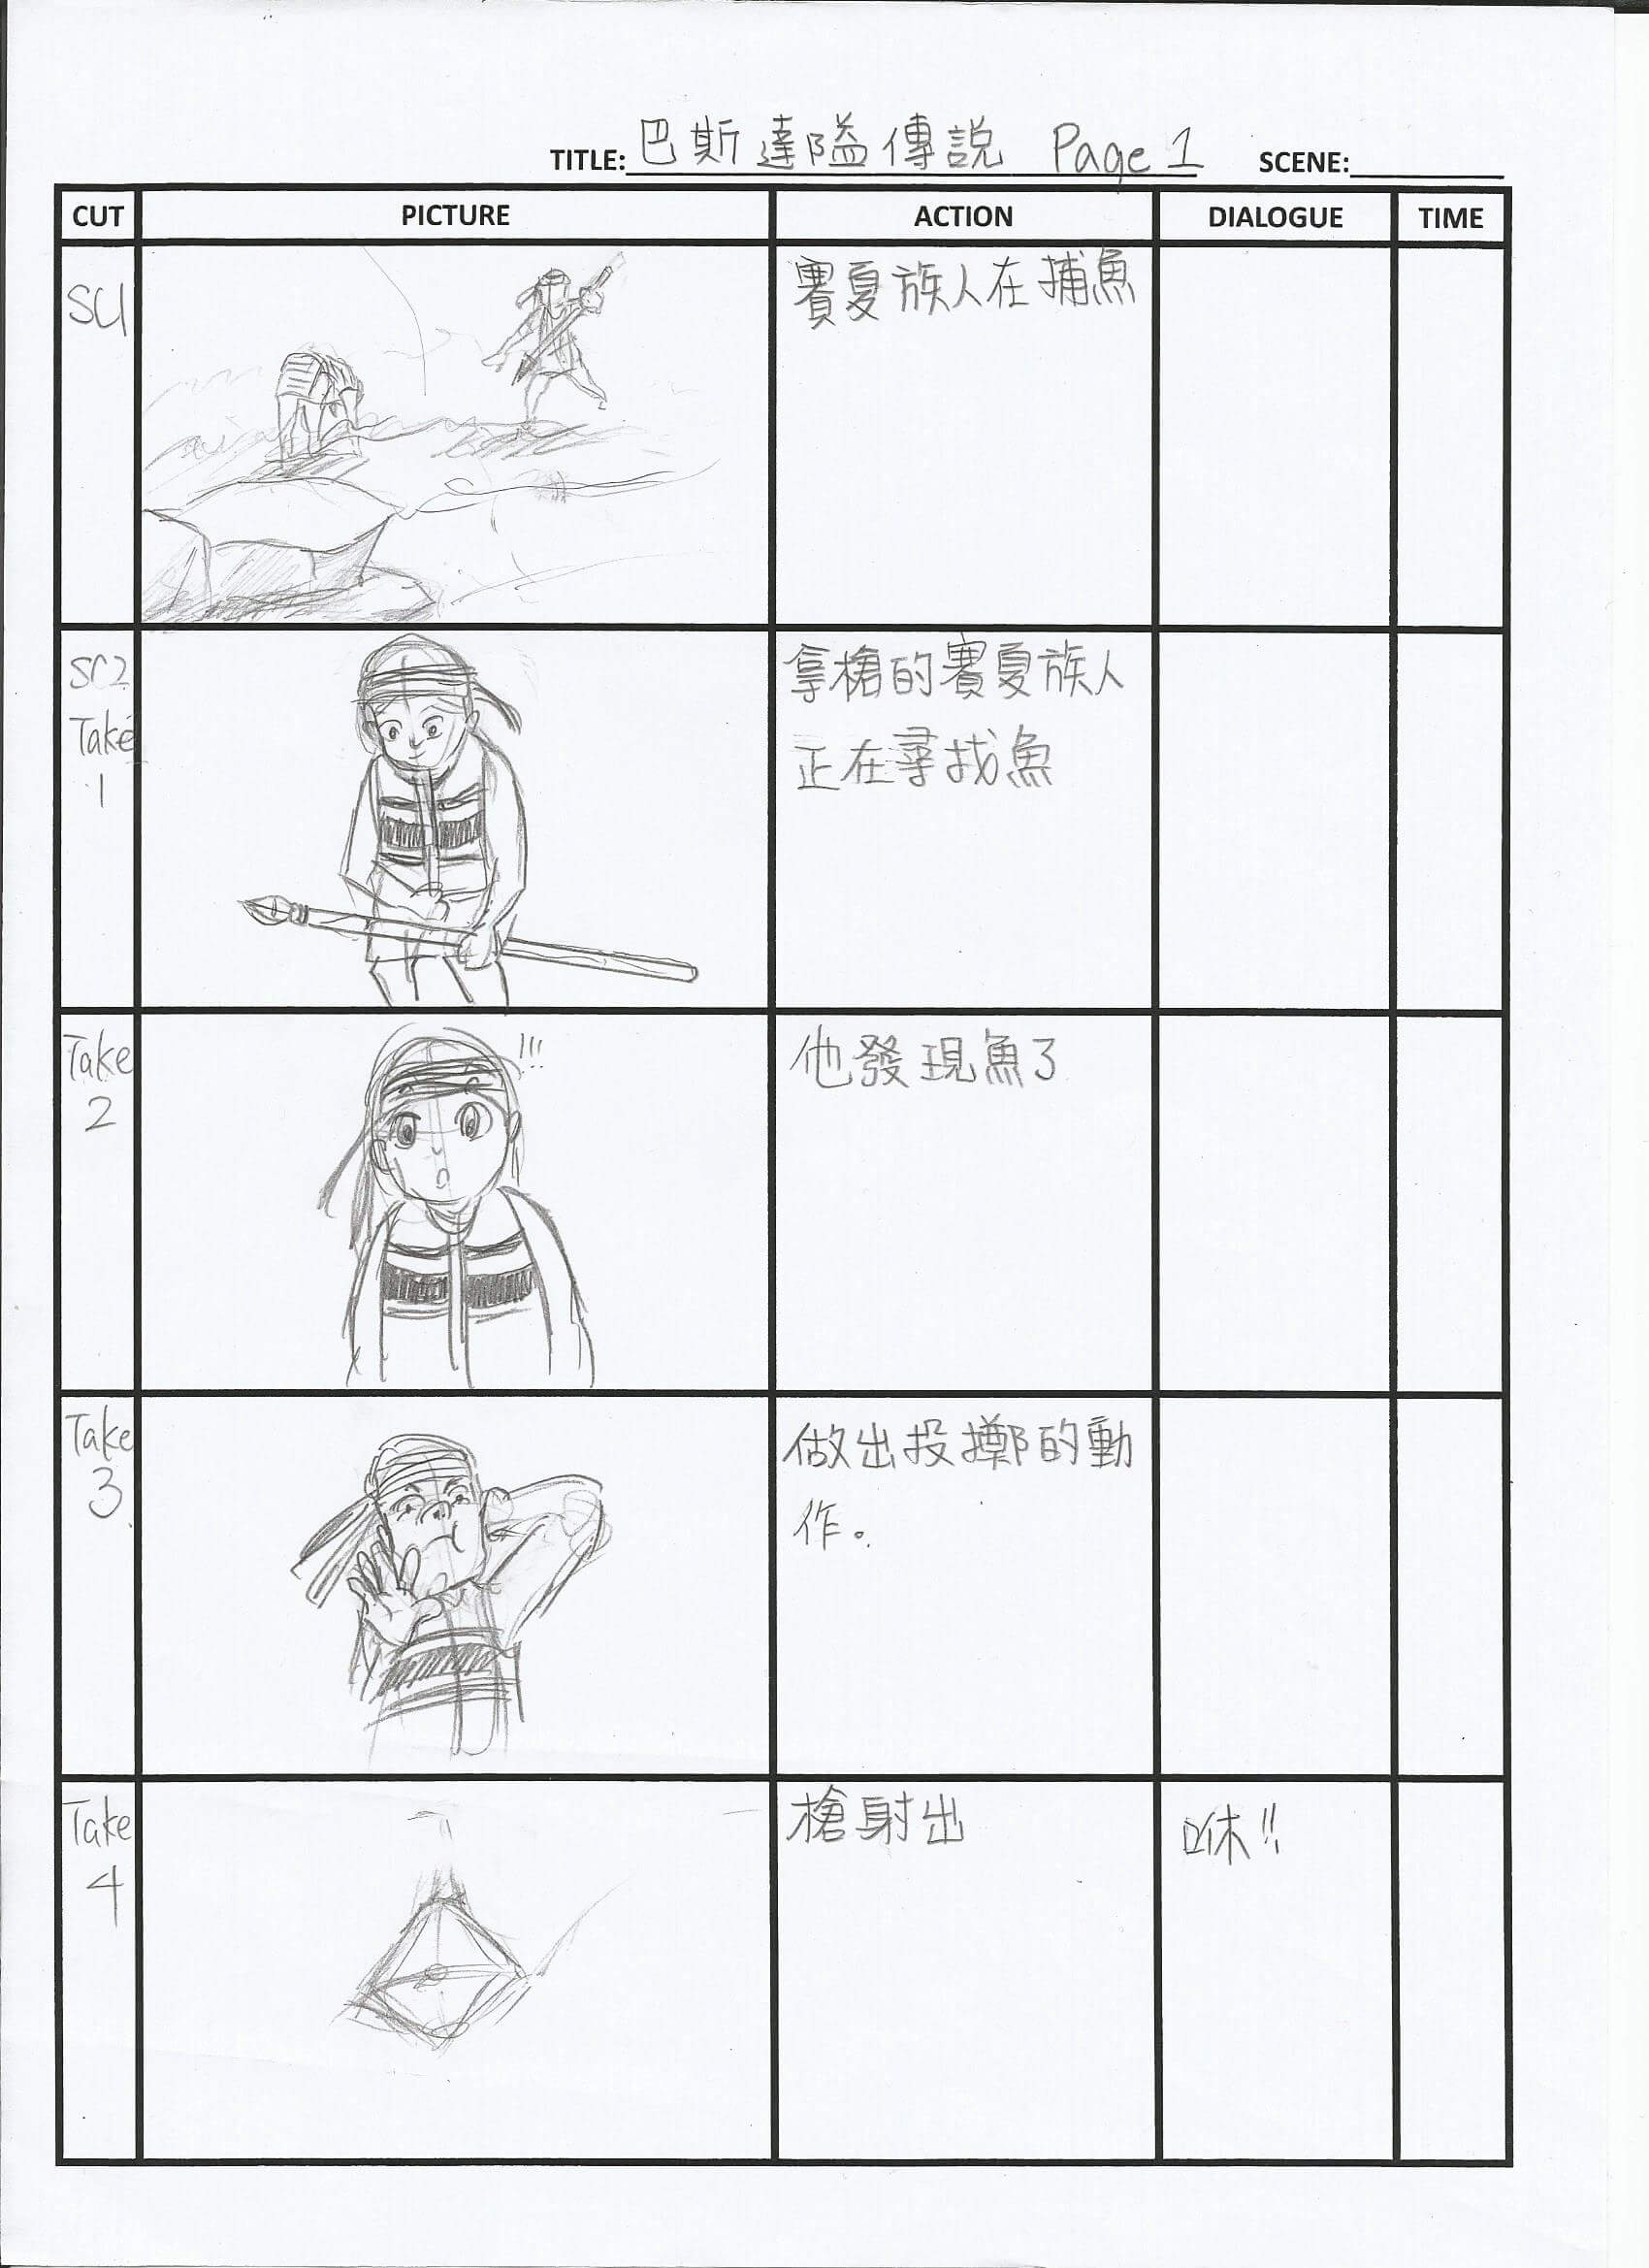 TITLE: 巴斯達隘傳說 Page 1 SCENE:
CUT PICTURE ACTION DIALOGUE TIME
SC1
賽夏族人在捕魚
SC2
Take
1
拿槍的賽夏族人
正在尋找魚
!!!
Take
2
他發現魚了
Take
3
做出投擲的動
作。
Take
4
槍射出
咻!!